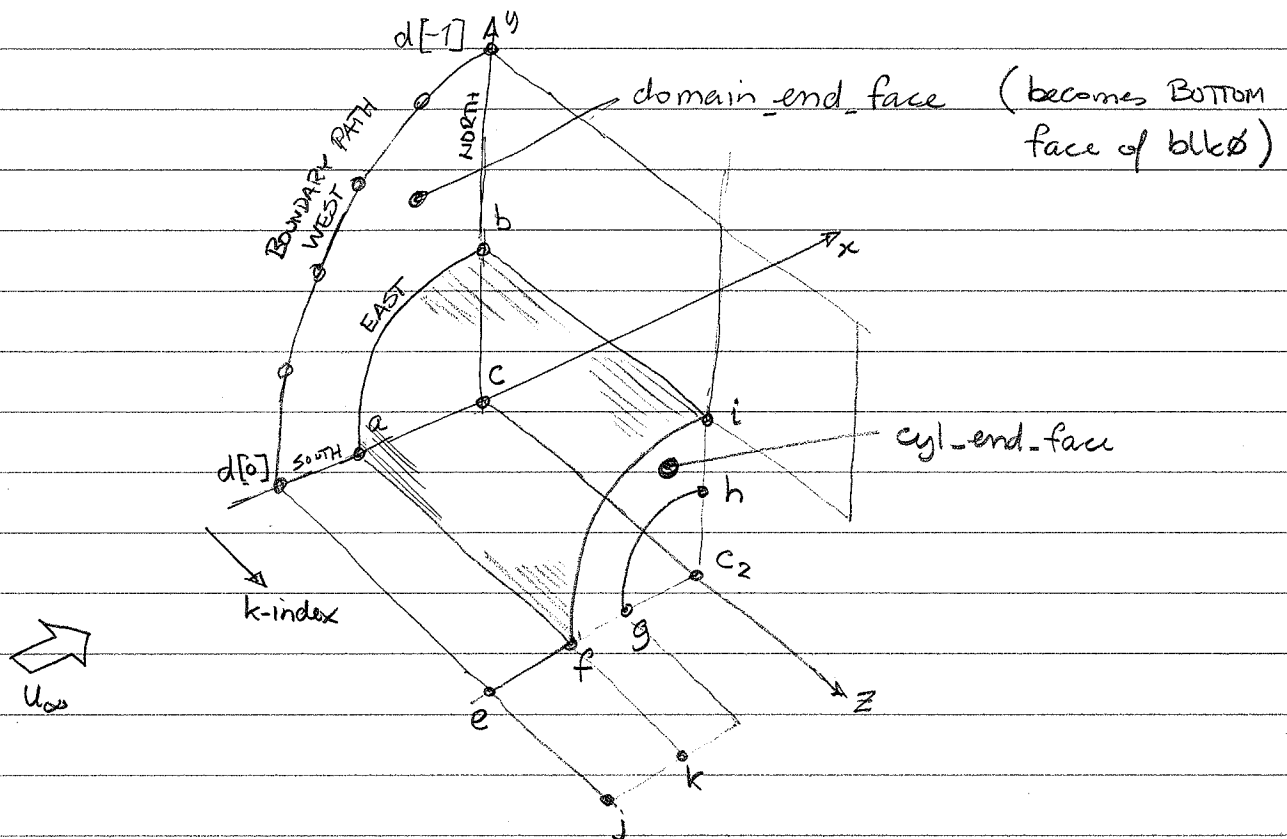 y
d[-1]
domain_end_face (becomes BOTTOM
face of blk0)
NORTH
BOUNDARY PATH
WEST
b
x
EAST
c
i
a
cyl_end_face
d[0]
SOUTH
h
c2
k-index
g
f
U∞
e
z
k
j